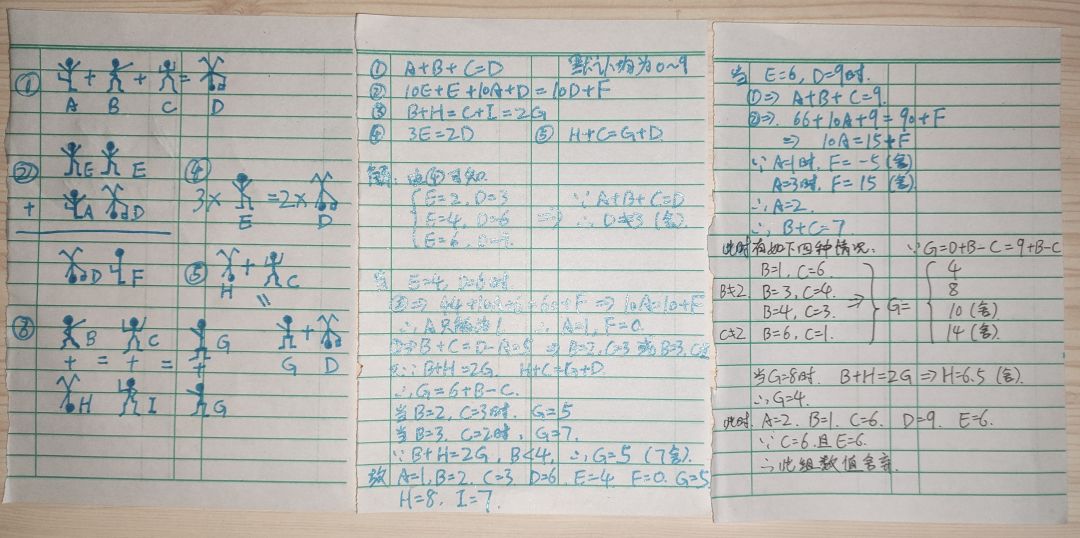 ①
+ + =
A B C D
②
E E
+ A D
D F
④
3× =2×
E D
⑤
+ C
H =
G + D
③
B C G
+ = + = +
H I G
① A+B+C=D 默认均为0~9
② 10E+E+10A+D=10D+F
③ B+H=C+I=2G
④ 3E=2D ⑤ H+C=G+D
解:由④可知
E=2, D=3 ∵A+B+C=D
E=4, D=6 ⇒ ∴D≠3 (舍)
E=6, D=9
当 E=4, D=6时
②⇒ 44+10A+6=60+F ⇒10A=10+F
∴A只能为1 ∴A=1, F=0.
①⇒B+C=D-A=5 ⇒B=2,C=3或B=3,C=2
又∵B+H=2G, H+C=G+D
∴G=6+B-C.
当B=2, C=3时. G=5
当B=3. C=2时, G=7.
∵B+H=2G, B<4, ∴G=5 (7舍).
故 A=1,B=2. C=3 D=6. E=4. F=0. G=5
H=8. I=7.
当 E=6, D=9时.
①⇒ A+B+C=9.
②⇒. 66+10A+9=90+F
⇒ 10A=15+F
∵A=1时. F=-5 (舍)
A=3时, F=15 (舍)
∴A=2.
∴B+C=7
此时有如下四种情况. ∵G=D+B-C=9+B-C
B=1, C=6. 4
B≠2. B=3, C=4. 8
B=4, C=3. ⇒ G= 10 (舍)
C≠2 B=6, C=1. 14 (舍).
当G=8时. B+H=2G ⇒H=6.5 (舍).
∴G=4.
此时. A=2. B=1. C=6. D=9. E=6.
∵C=6.且E=6.
∴此组数值舍弃.